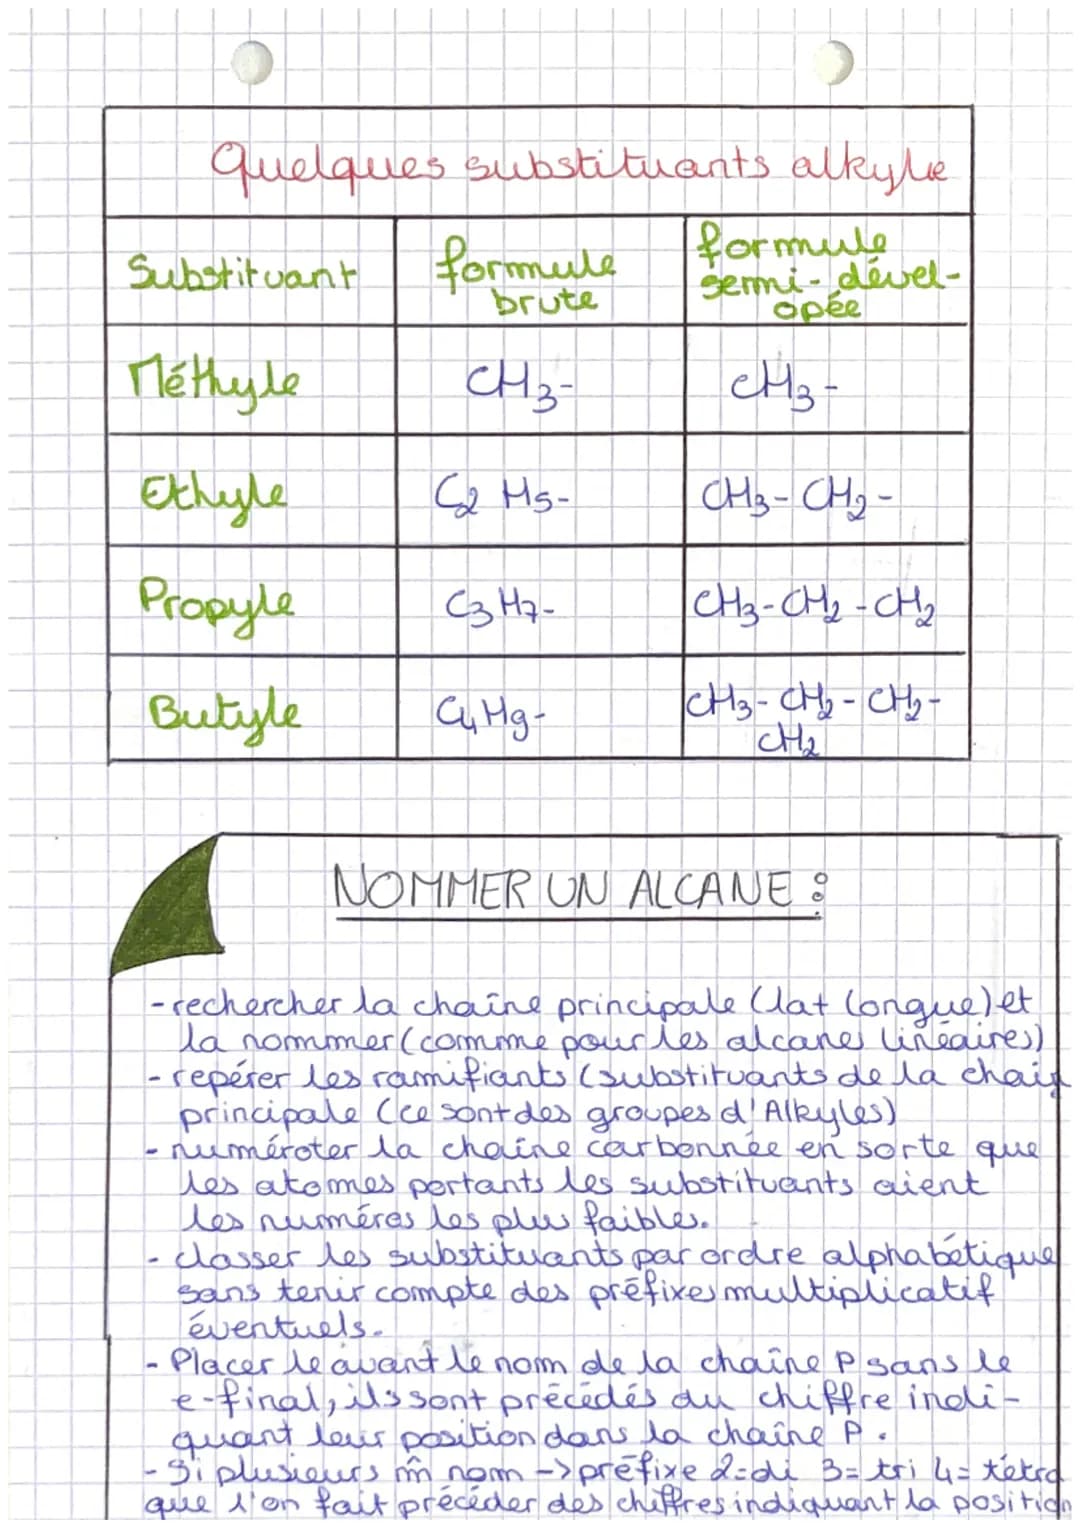 Quelques substituants alkyle
Substituant
formule
brute
formule
semi-dével-
opée
Méthyle
CH3-
CH3-
Ethyle
C2 H5-
CH3-CH2-
Propyle
C3H7-
CH3-CH2-CH2
Butyle
C4H9-
CH3-CH2-CH2-
CH2
NOMMER UN ALCANE :
-rechercher la chaîne principale (la+ longue) et
la nommer (comme pour les alcanes linéaires)
-repérer les ramifiants (substituants de la chain
principale (ce sont des groupes d'Alkyles)
-numéroter la chaîne carbonnée en sorte que
les atomes portants les substituants aient
les numéros les plus faibles.
-classer les substituants par ordre alphabétique
sans tenir compte des préfixes multiplicatif
éventuels.
-Placer le avant le nom de la chaîne P sans le
e-final, ils sont précédés du chiffre indi-
quant leur position dans la chaîne P.
-Si plusieurs m̂ nom -> préfixe 2=di 3=tri 4=tétra
que l'on fait précéder des chiffres indiquant la position